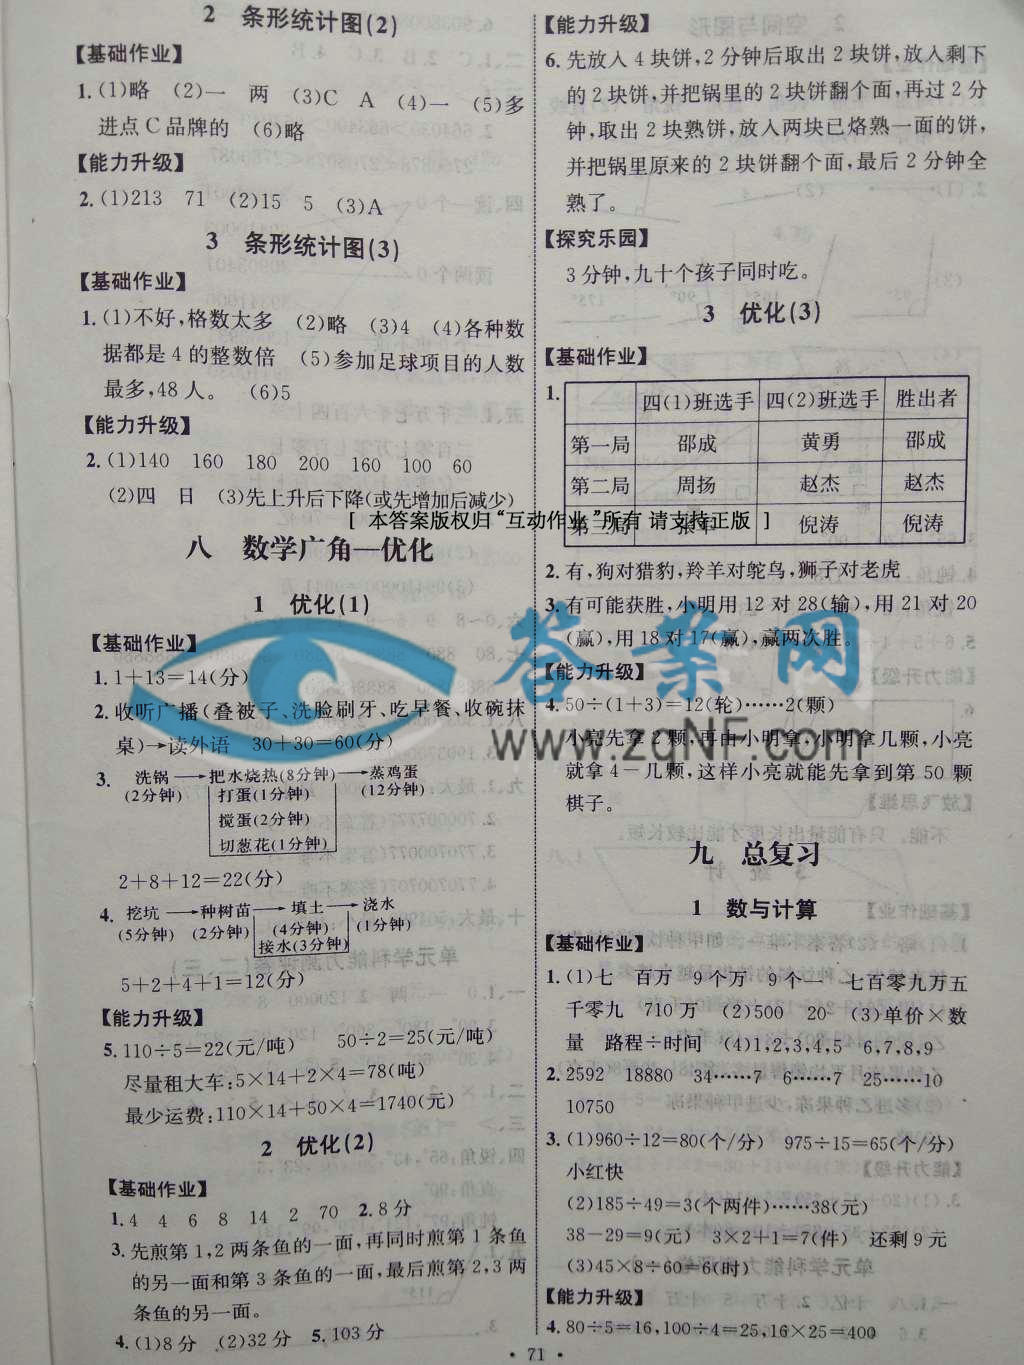 2 条形统计图(2)
【基础作业】
1.(1)略 (2)一 两 (3)C A (4)一 (5)多
进点 C 品牌的 (6)略
【能力升级】
2.(1)213 71 (2)15 5 (3)A
3 条形统计图(3)
【基础作业】
1.(1)不好,格数太多 (2)略 (3)4 (4)各种数
据都是 4 的整数倍 (5)参加足球项目的人数
最多,48 人。 (6)5
【能力升级】
2.(1)140 160 180 200 160 100 60
(2)四 日 (3)先上升后下降(或先增加后减少)
八 数学广角—优化
1 优化(1)
【基础作业】
1.1+13=14(分)
2.收听广播(叠被子、洗脸刷牙、吃早餐、收碗抹
桌)→读外语 30+30=60(分)
3. 洗锅→把水烧热(8分钟)→蒸鸡蛋
(2分钟) 打蛋(1分钟) (12分钟)
搅蛋(2分钟)
切葱花(1分钟)
2+8+12=22(分)
4. 挖坑→种树苗→填土→浇水
(5分钟) (2分钟) (4分钟) (1分钟)
接水(3分钟)
5+2+4+1=12(分)
【能力升级】
5.110÷5=22(元/吨) 50÷2=25(元/吨)
尽量租大车:5×14+2×4=78(吨)
最少运费:110×14+50×4=1740(元)
2 优化(2)
【基础作业】
1.4 4 6 8 14 2 70 2.8 分
3.先煎第 1,2 两条鱼的一面,再同时煎第 1 条鱼
的另一面和第 3 条鱼的一面,最后煎第 2,3 两
条鱼的另一面。
4.(1)8 分 (2)32 分 5.103 分
【能力升级】
6.先放入 4 块饼,2 分钟后取出 2 块饼,放入剩下
的 2 块饼,并把锅里的 2 块饼翻个面,再过 2 分
钟,取出 2 块熟饼,放入两块已烙熟一面的饼,
并把锅里原来的 2 块饼翻个面,最后 2 分钟全
熟了。
【探究乐园】
3 分钟,九十个孩子同时吃。
3 优化(3)
【基础作业】
1.
四(1)班选手 四(2)班选手 胜出者
第一局 邵成 黄勇 邵成
第二局 周扬 赵杰 赵杰
第三局 张军 倪涛 倪涛
[ 本答案版权归“互动作业”所有 请支持正版 ]
2.有,狗对猎豹,羚羊对鸵鸟,狮子对老虎
3.有可能获胜,小明用 12 对 28(输),用 21 对 20
(赢),用 18 对 17(赢),赢两次胜。
【能力升级】
4.50÷(1+3)=12(轮)……2(颗)
小亮先拿 2 颗,再由小明拿,小明拿几颗,小亮
就拿 4－几颗,这样小亮就能先拿到第 50 颗
棋子。
答案网
www.zqNF.com
九 总复习
1 数与计算
【基础作业】
1.(1)七 百万 9 个万 9 个一 七百零九万五
千零九 710 万 (2)500 20 (3)单价×数
量 路程÷时间 (4)1,2,3,4,5 6,7,8,9
2.2592 18880 34……7 6……7 25……10
10750
3.(1)960÷12=80(个/分) 975÷15=65(个/分)
小红快
(2)185÷49=3(个两件)……38(元)
38-29=9(元) 3×2+1=7(件) 还剩 9 元
(3)45×8÷60=6(时)
【能力升级】
4.80÷5=16,100÷4=25,16×25=400
· 71 ·